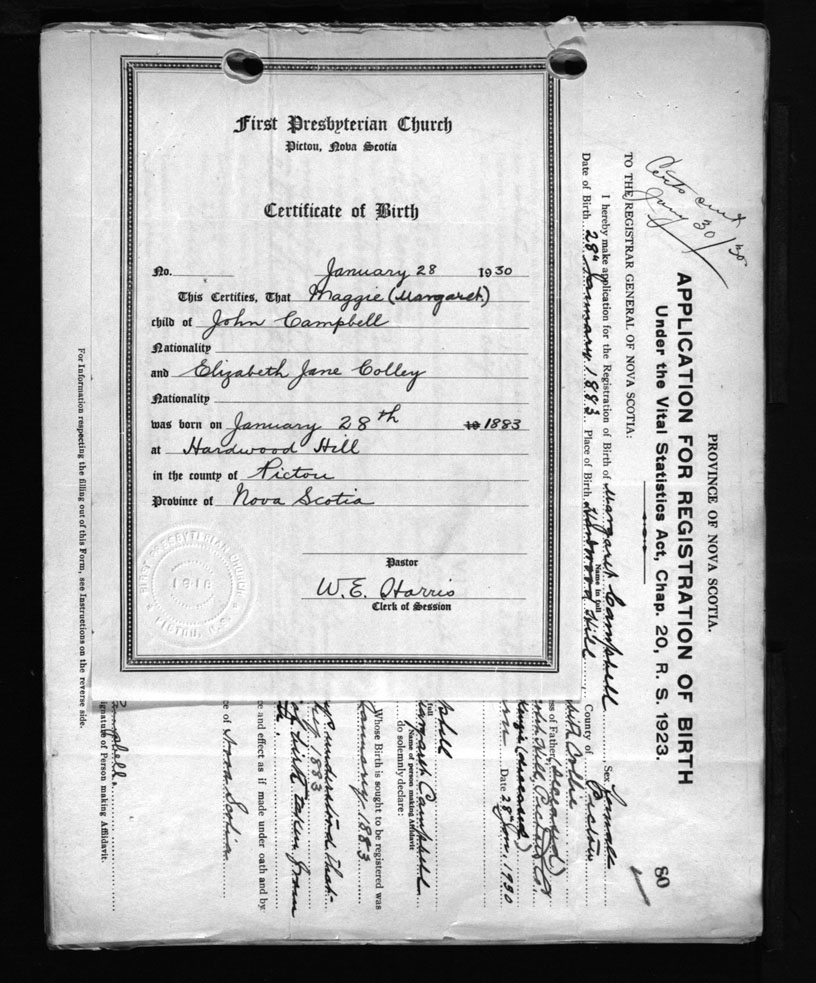 First Presbyterian Church
Pictou, Nova Scotia
Certificate of Birth
No. January 28 1930
This Certifies, That Maggie (Margaret)
child of John Campbell
Nationality
and Elizabeth Jane Colley
Nationality
was born on January 28th 19 1883
at Hardwood Hill
in the county of Pictou
Province of Nova Scotia
Pastor
W. E. Harris
Clerk of Session
FIRST PRESBYTERIAN CHURCH
PICTOU, N.S.
Certs out
Jany 30/30
PROVINCE OF NOVA SCOTIA.
APPLICATION FOR REGISTRATION OF BIRTH
Under the Vital Statistics Act, Chap. 20, R. S. 1923.
80
TO THE REGISTRAR GENERAL OF NOVA SCOTIA:
I hereby make application for the Registration of Birth of Margaret Campbell Sex Female
Name in full
Date of Birth 28th January 1883 Place of Birth Hardwood Hill County of Pictou
ss of Father (deceased)
(deceased)
Date 28th Jan. 1930
pbell
full
Margaret Campbell
Name of person making Affidavit
do solemnly declare:
Whose Birth is sought to be registered was
January 1883
understood that
1883
of birth taken from
e and effect as if made under oath and by
ce of Nova Scotia
Campbell
ignature of Person making Affidavit.
For Information respecting the filling out of this Form, see Instructions on the reverse side.